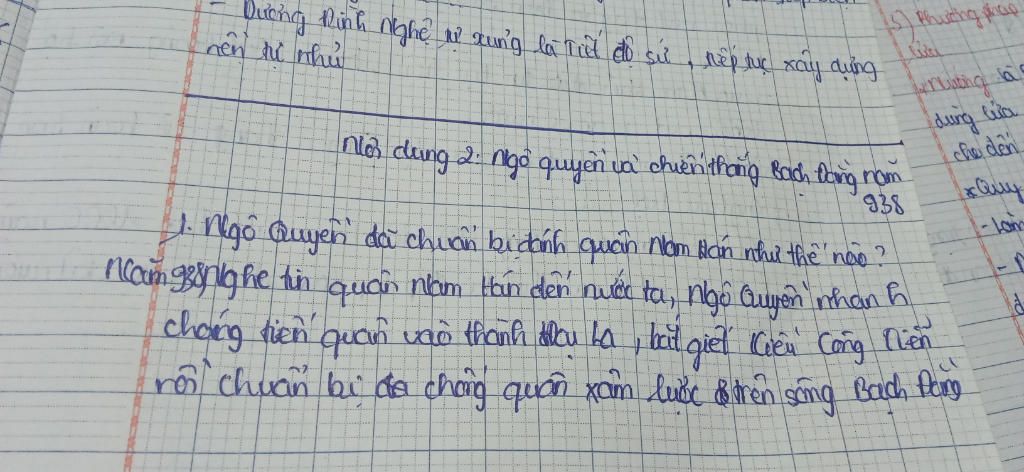 - Dương Đình Nghệ tự xưng là Tiết độ sứ, tiếp tục xây dựng
nền tự chủ
Nội dung 2: Ngô quyền và chiến thắng Bạch Đằng năm
938
1. Ngô Quyền đã chuẩn bị đánh quân Nam Hán như thế nào?
Năm 938 nghe tin quân Nam Hán đến nước ta, Ngô Quyền nhanh
chóng tiến quân vào thành Đại La, bắt giết Kiều Công Tiễn
rồi chuẩn bị chống quân xâm lược trên sông Bạch Đằng
5) Phương pháp
của
dùng của
cho đến
* Quy